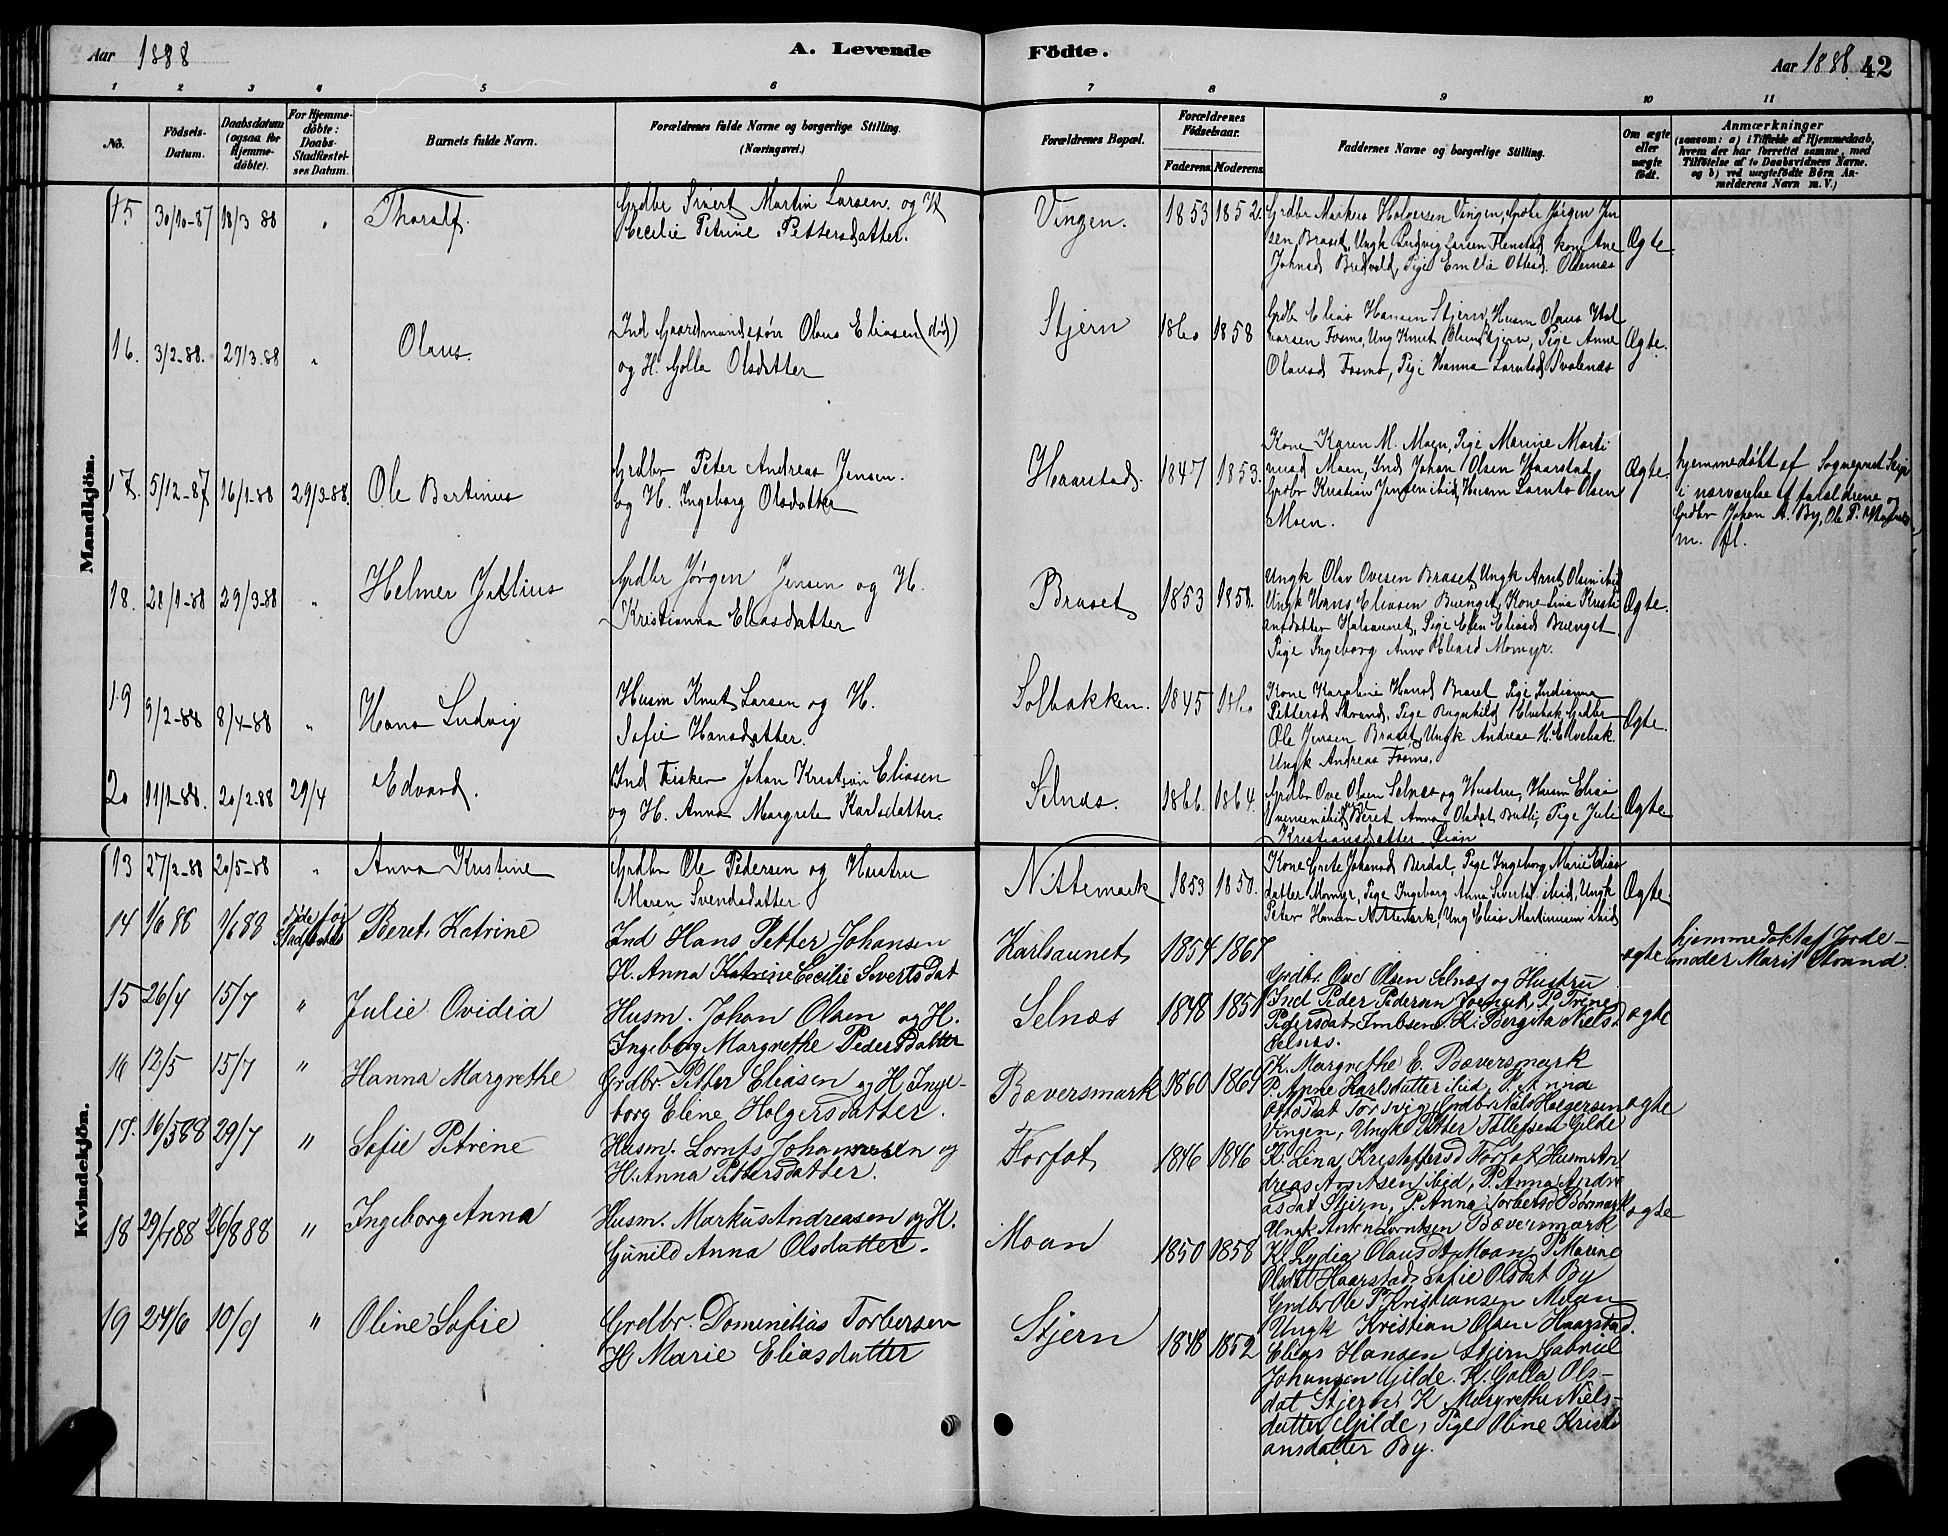 Aar 1888
A. Levende
Födte.
Aar 1888. 42
1 2 3 4 5 6 7 8 9 10 11
No.
Födsels-Datum.
Daabsdatum (ogsaa for Hjemme-döbte).
For Hjemme-döbte: Daabs-Stadfæstel-ses Datum.
Barnets fulde Navn.
Forældrenes fulde Navne og borgerlige Stilling. (Næringsvei.)
Forældrenes Bopæl.
Forældrenes Födselsaar.
Faderens. Moderens.
Faddernes Navne og borgerlige Stilling.
Om ægte eller uægte födt.
Anmærkninger
(saasom: a) i Tilfælde af Hjemmedaab,
hvem der har forrettet samme, med
Tilföielse af to Daabsvidners Navne.
og b) ved uægtefödte Börn An-
melderens Navn m. V.)
Mandkjön.
15 30/10-87 18/3 88 " Thoralf.
Grdbr Sivert Martin Larsen og H
Cecilie Petrine Pettersdatter.
Vingen. 1853 1852
Grdbr Markus Holgersen Vingen, Grdbr Jørgen Jen
sen Braset, Ungk Ludvig Larsen Flenstad, kone Ane
Johnsd Bredvold, Pige Emilie Ottesd. Oldernæs
Ægte
16. 3/2-88. 29/3-88 " Olaus.
Ind Gaardmandssøn Olaus Eliasen (død)
og H. Golla Olsdatter
Stjern 1860 1858
Grdbr Elias Hansen Stjern, Husm Olaus Hal
varsen Fosmo, Ung Knut Olsen Stjern, Pige Anne
Olausd Fosmo, Pige Hanna Larntsd
Ægte.
17. 5/12-87. 16/1-88 29/3-88. Ole Bertinus
Grdbr Peter Andreas Jensen.
og H. Ingeborg Olsdatter
Haarstad. 1847 1853.
Kone Karen M. Moen, Pige Marine Marti
nusd Moen, Ind Johan Olsen Haarstad
Grdbr Kristian Jensen ibid, Husm Lornts Olsen
Moen.
Ægte.
hjemmedøbt af Sogneprest
i nærværelse af forældrene og
Grdbr Johan A. By, Ole P.
m. fl.
18. 28/1-88 29/3-88 " Helmer Julius
Grdbr Jørgen Jensen og H.
Kristianna Eliasdatter
Braset 1853 1858.
Ungk Olav Ovesen Braset, Ungk Arnt Olsen ibid
Ungk Hans Eliasen Buenget, Kone Lina Kristi
ansdatter Halsaunet, Pige Elen Eliasd Buenget
Pige Ingeborg Anna Eliasd Momyr.
Ægte.
19 9/2-88 8/4-88 " Hans Ludvig
Husm Knut Larsen og H.
Sofie Hansdatter.
Solbakken. 1845 1860
Kone Karoline Hansd Braset Pige Indianna
Pettersd Strand, Pige Ragnhild Elvebak, Grdbr
Ole Jensen Braset, Ungk Andreas H. Elvebak
Ungk Andreas Fosmo.
Ægte.
20 11/1-88. 20/2-88 29/4 Edvard.
Ind Fisker Johan Kristian Eliasen
og H. Anna Margrete Karlsdatter.
Selnæs. 1866. 1864.
Grdbr Ove Olsen Selnæs og Hustru, Husm Elias
Svensen ibid, Beret Anna Olsdat Butli, Pige Julie
Kristiansdatter Øian
Ægte
Kvindekjön.
13 27/2-88 20/5-88 " Anna Kristine
Grdbr Ole Pedersen og Hustru
Maren Svendsdatter
Nittemark 1853 1850.
Kone Grete Johansd Berdal, Pige Ingeborg Marie Elias
datter Momyr, Pige Ingeborg Anna Sivertsd ibid, Ungk
Peter Hansen Nittemark, Ung Elias Martinusen ibid
Ægte.
14 1/6 88 1/6 88 døde før Stadfæstels Beret Katrine
Ind Hans Petter Johansen
H. Anna Katrine Cecilie Sivertsdat
Karlsaunet 1854 1867
ægte
hjemmedøbt af Jorde-
moder Marit Strand.
15 26/4 15/7 " Julie Ovidia
Husm. Johan Olsen og H.
Ingeborg Margrethe Pedersdatter
Selnæs 1848 1851
Grdbr. Ove Olsen Selnæs og Hustru
Ind Peder Pedersen, P. Trine
Pedersdat Imbsen. K. Bergita Nielsd
Selnæs.
ægte
16 12/5 15/7 " Hanna Margrethe
Grdbr. Petter Eliasen og H Inge-
borg Eline Holgersdatter.
Bæversmark 1860 1861
K. Margrethe E. Bæversmark
P. Anne Karlsdatter ibid, P. Anna
Ottosdat Torsvig, Grdbr Nils Holgersen
Vingen, Ungk Petter Tollefsen Gilde
ægte
17. 16/5 88 29/7 " Sofie Petrine
Husm. Lornts Johannessen og
H. Anna Pettersdatter.
Forfot 1846 1846
K. Lina Kristoffersd Forfot, Husm An
dreas Arntsen ibid, P. Anna Andre
asdat Stjern, P. Anna Torbersd Børmark
Ungk Anton Lorntsen Bævermark
ægte
18 29/7 88 26/8 88 " Ingeborg Anna
Husm. Markus Andreasen og H.
Gunild Anna Olsdatter.
Moan 1850 1858
K. Lydia Olausdt Moan, P Marine
Olsdat Haarstad, Sofie Olsdat By
Grdbr Ole P Kristiansen Moan
Ungk Kristian Olsen Haarstad.
19 24/6 10/9 " Oline Sofie
Grdbr. Dominikus Torbersen
H Marie Eliasdatter
Stjern 1848 1852
Elias Hansen Stjern, Gabriel
Johansen Gilde. K. Golla Ols-
dat Stjern, K Margrethe Niels-
datter Gilde, Pige Oline Kristi
ansdatter By.